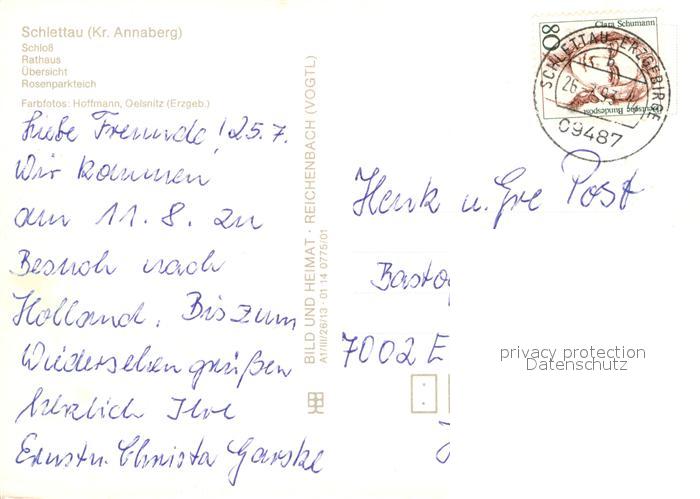 Schlettau (Kr. Annaberg)
Schloß
Rathaus
Übersicht
Rosenparkteich
Farbfotos: Hoffmann, Oelsnitz (Erzgeb.)
Liebe Freunde! 25.7.
Wir kommen
am 11.8. zu
Besuch nach
Holland. Bis zum
Wiedersehen grüßen
herzlich Ihre
Ernst u. Christa Garske
BILD UND HEIMAT · REICHENBACH (VOGTL)
A1/III/26/13 · 01 14 0775/01
80
Clara Schumann
Deutsche Bundespost
SCHLETTAU, ERZGEBIRGE
26.7.93
09487
Henk u. Gre Post
Basto
7002 E
privacy protection
Datenschutz